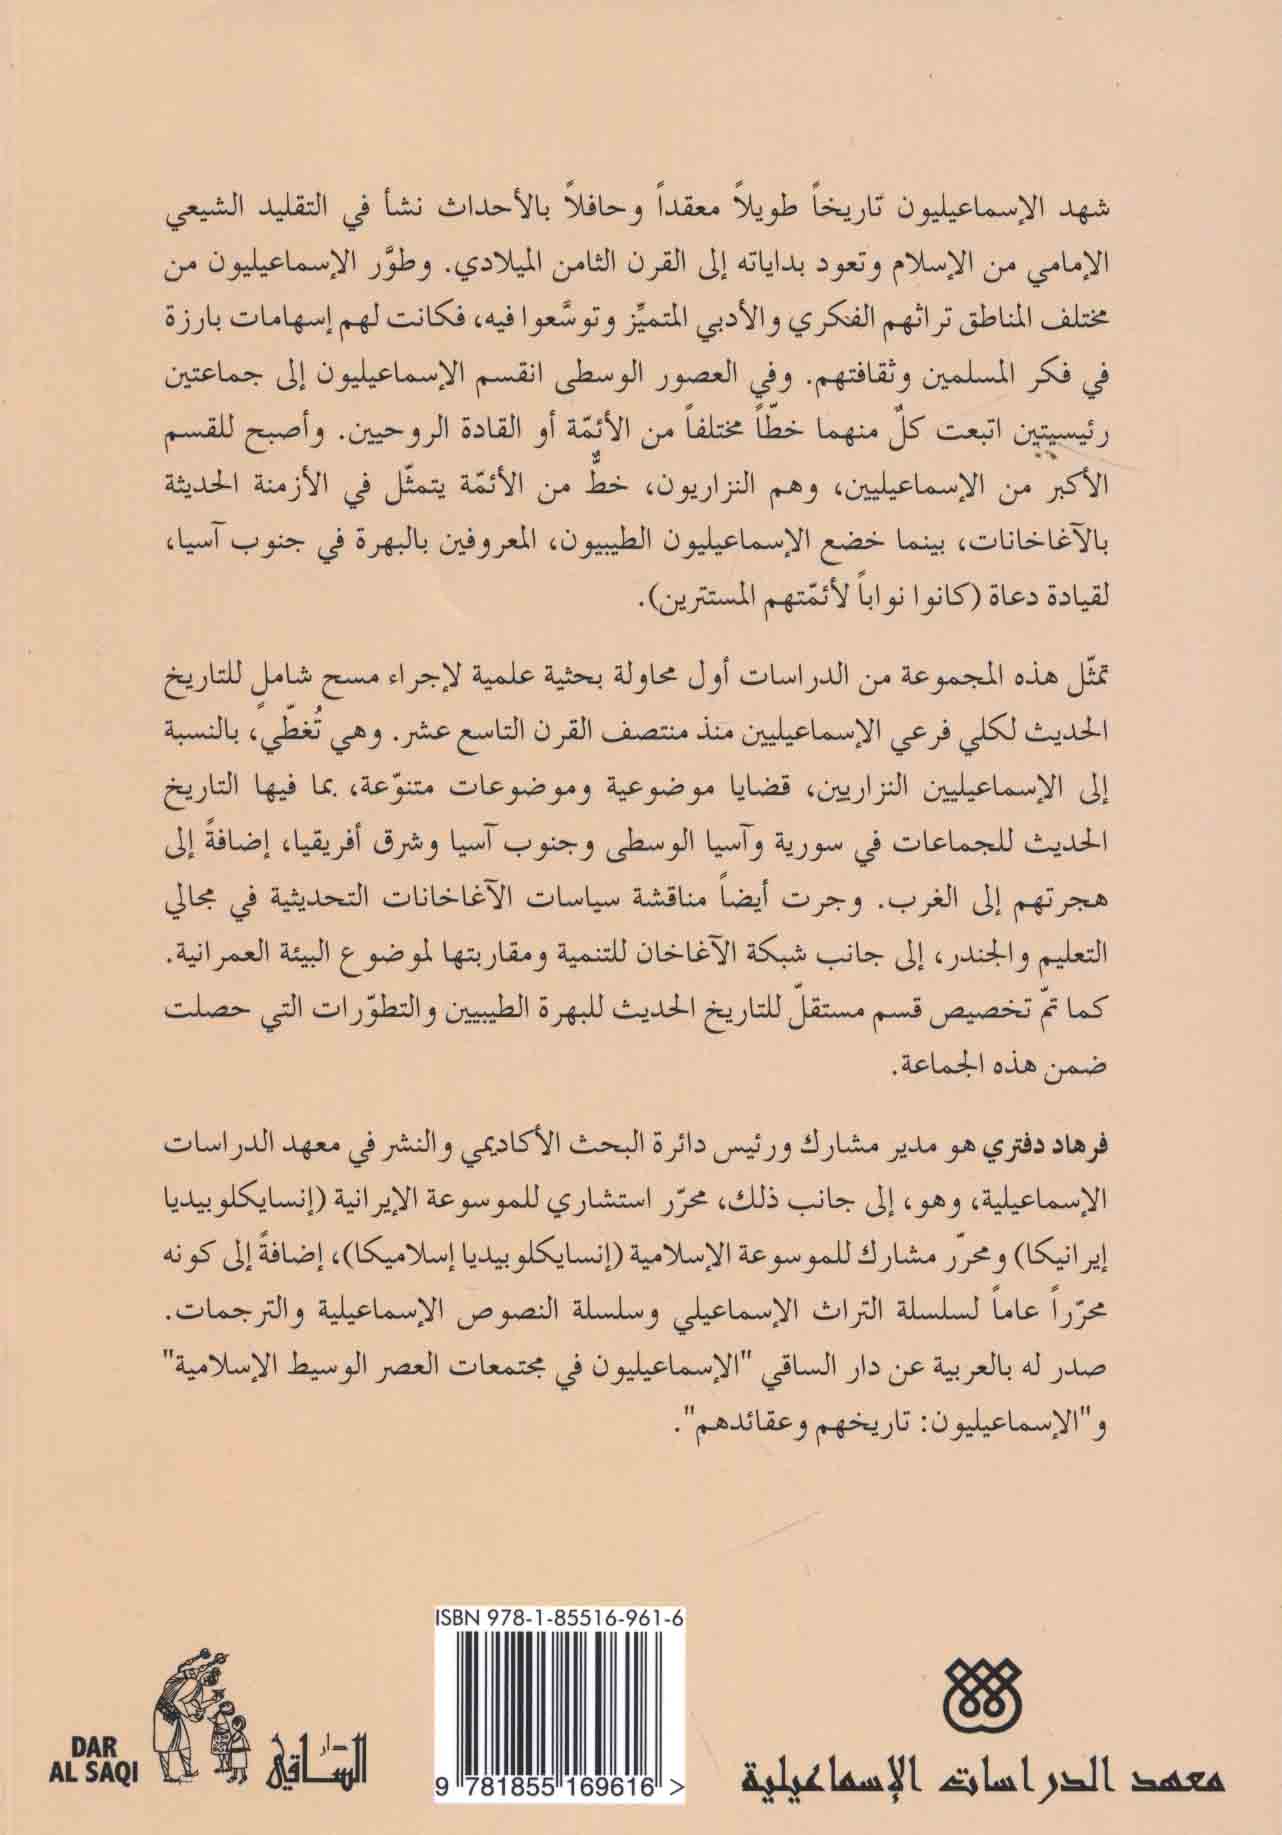 شهد الإسماعيليون تاريخاً طويلاً معقداً وحافلاً بالأحداث نشأ في التقليد الشيعي
الإمامي من الإسلام وتعود بداياته إلى القرن الثامن الميلادي. وطوَّر الإسماعيليون من
مختلف المناطق تراثهم الفكري والأدبي المتميِّز وتوسَّعوا فيه، فكانت لهم إسهامات بارزة
في فكر المسلمين وثقافتهم. وفي العصور الوسطى انقسم الإسماعيليون إلى جماعتين
رئيسيتين اتبعت كلٌ منهما خطّاً مختلفاً من الأئمّة أو القادة الروحيين. وأصبح للقسم
الأكبر من الإسماعيليين، وهم النزاريون، خطٌّ من الأئمّة يتمثّل في الأزمنة الحديثة
بالآغاخانات، بينما خضع الإسماعيليون الطيبيون، المعروفين بالبهرة في جنوب آسيا،
لقيادة دعاة (كانوا نواباً لأئمّتهم المستترين).
تمثّل هذه المجموعة من الدراسات أول محاولة بحثية علمية لإجراء مسح شاملٍ للتاريخ
الحديث لكلي فرعي الإسماعيليين منذ منتصف القرن التاسع عشر. وهي تُغطّي، بالنسبة
إلى الإسماعيليين النزاريين، قضايا موضوعية وموضوعات متنوّعة، بما فيها التاريخ
الحديث للجماعات في سورية وآسيا الوسطى وجنوب آسيا وشرق أفريقيا، إضافةً إلى
هجرتهم إلى الغرب. وجرت أيضاً مناقشة سياسات الآغاخانات التحديثية في مجالي
التعليم والجندر، إلى جانب شبكة الآغاخان للتنمية ومقاربتها لموضوع البيئة العمرانية.
كما تمّ تخصيص قسم مستقلّ للتاريخ الحديث للبهرة الطيبيين والتطوّرات التي حصلت
ضمن هذه الجماعة.
فرهاد دفتري هو مدير مشارك ورئيس دائرة البحث الأكاديمي والنشر في معهد الدراسات
الإسماعيلية، وهو، إلى جانب ذلك، محرّر استشاري للموسوعة الإيرانية (إنسايكلوبيديا
إيرانيكا) ومحرّر مشارك للموسوعة الإسلامية (إنسايكلوبيديا إسلاميكا)، إضافةً إلى كونه
محرّراً عاماً لسلسلة التراث الإسماعيلي وسلسلة النصوص الإسماعيلية والترجمات.
صدر له بالعربية عن دار الساقي "الإسماعيليون في مجتمعات العصر الوسيط الإسلامية"
و"الإسماعيليون: تاريخهم وعقائدهم".
ISBN 978-1-85516-961-6
9 781855 169616 >
معهد الدراسات الإسماعيلية
دار الساقي
DAR
AL SAQI